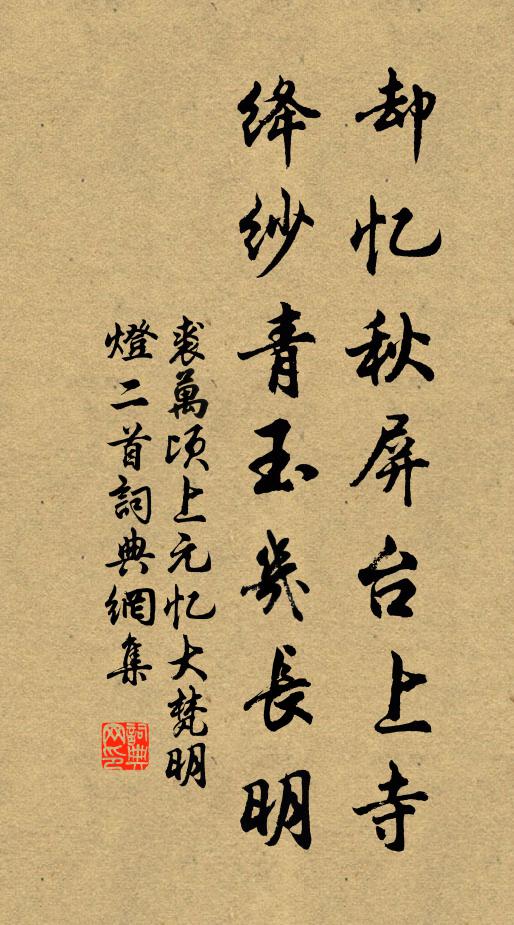 却忆秋屏台上寺
绛纱青玉幾長明
裘萬顷上元忆大梵明
燈二首詞典網集
詞典網印